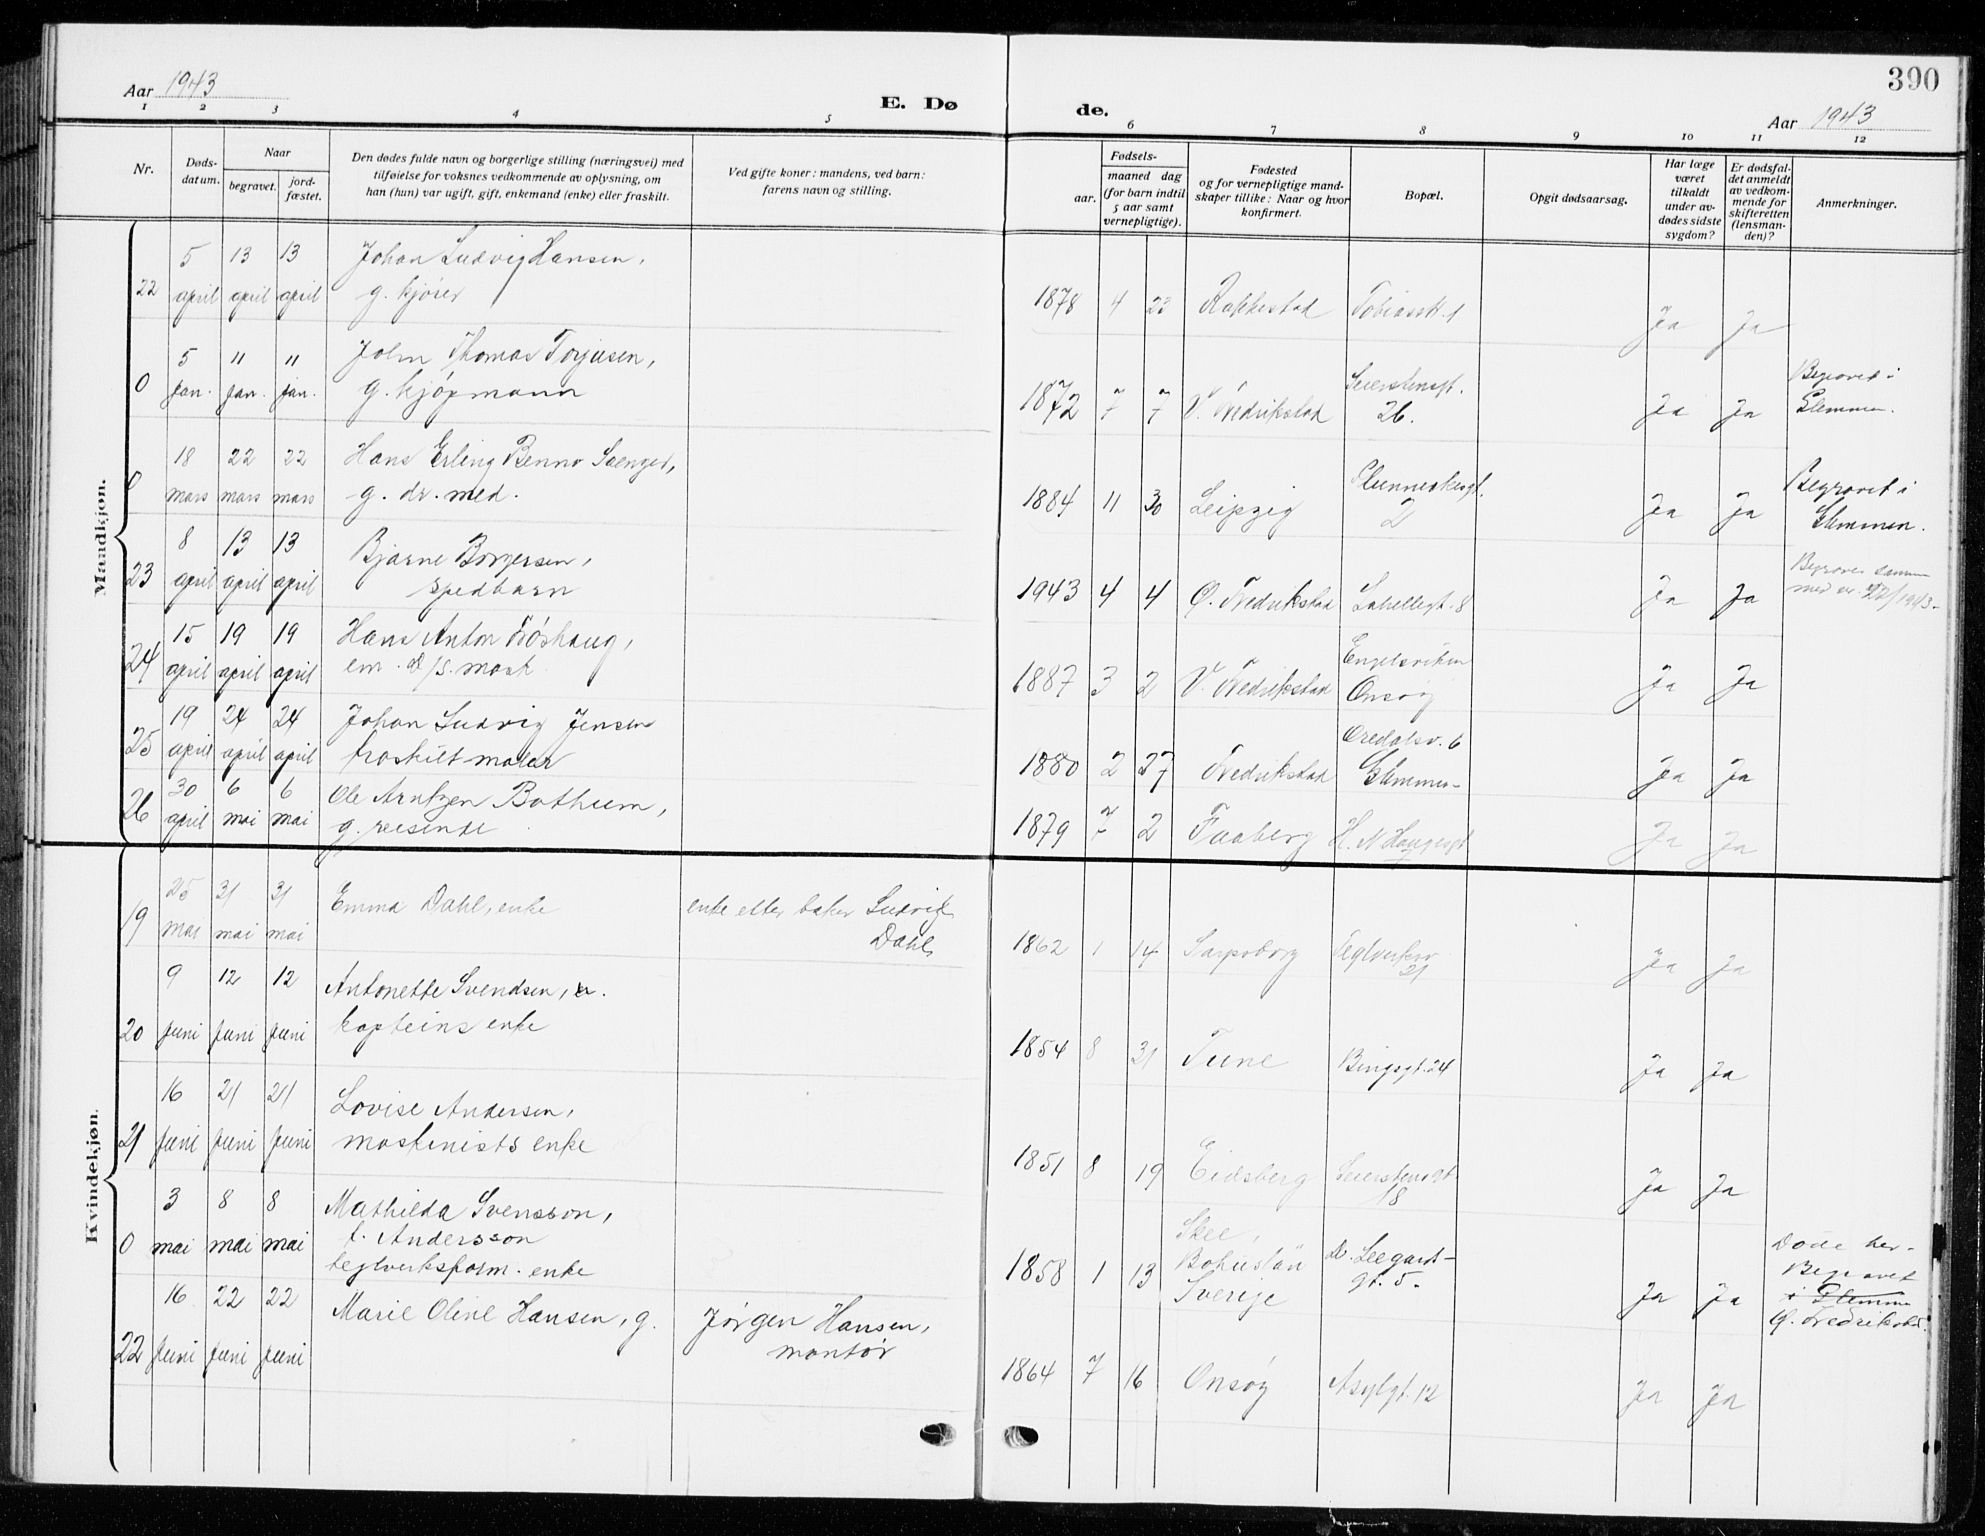 Aar 1943
E. Dø
de.
390
Aar 1943
1 2 3 4 5 6 7 8 9 10 11 12
Nr.
Døds-
datum.
Naar
begravet.
jord-
fæstet.
Den dødes fulde navn og borgerlige stilling (næringsvei) med
tilføielse for voksnes vedkommende av oplysning, om
han (hun) var ugift, gift, enkemand (enke) eller fraskilt.
Ved gifte koner: mandens, ved barn:
farens navn og stilling.
Fødsels-
aar.
maaned dag
(for barn indtil
5 aar samt
vernepligtige).
Fødested
og for vernepligtige mand-
skaper tillike: Naar og hvor
konfirmert.
Bopæl.
Opgit dødsaarsag.
Har læge
været
tilkaldt
under av-
dødes sidste
sygdom?
Er dødsfal-
det anmeldt
av vedkom-
mende for
skifteretten
(lensman-
den)?
Anmerkninger.
Mandkjøn.
5 13 13 Johan Ludvig Hansen,
22 april april april g. kjører
1878 4 23 Rakkestad Tobiasst. 1 Ja Ja
5 11 11 John Thomas Torjusen,
0 jan. jan. jan. g. kjøpmann
1872 7 7 V. Fredrikstad Seierstensgt.
26. Ja Ja Begravet i
Glemmen.
18 22 22 Hans Erling Benno Saenger,
0 mars mars mars g. dr. med.
1884 11 30 Leipzig
2 Ja Ja Begravet i
Glemmen.
8 13 13 Bjarne Borgersen,
23 april april april spedbarn
1943 4 4 Ø. Fredrikstad Labellegt. 8 Ja Ja Begraves sammen
med nr. 22/1943.
15 19 19 Hans Anton Røshaug,
24 april april april em. d/s. mask.
1887 3 2 V. Fredrikstad Engelsviken
Onsøy Ja Ja
19 24 24 Johan Ludvig Jensen
25 april april april fraskilt maler
1880 2 27 Fredrikstad Oredalsv. 6
Glemmen Ja Ja
30 6 6 Ole Arntzen Bothum,
26 april mai mai g. reisende
1879 7 2 Faaberg H. N Haugesgt
7 Ja Ja
Kvindekjøn.
25 31 31 Emma Dahl, enke enke etter baker Ludvig
19 mai mai mai Dahl
1862 1 14 Sarpsborg Teglverksv.
21 Ja Ja
9 12 12 Antonette Svendsen,
20 juni juni juni kapteins enke
1854 8 31 Tune Bingsgt. 24 Ja Ja
16 21 21 Lovise Andersen,
21 juni juni juni maskinists enke
1851 8 19 Eidsberg Seierstensgt.
18 Ja Ja
3 8 8 Mathilda Svensson,
0 mai mai mai f. Andersson
teglverksform. enke
1858 1 13 Skee,
Bohuslän
Sverije D. Leegard-
gt. 5. Ja Ja Døde her.
Begravet
i Glemme
Ø. Fredrikstad.
16 22 22 Marie Oline Hansen, g. Jørgen Hansen,
22 juni juni juni montør
1864 7 16 Onsøy Asylgt. 12 Ja Ja